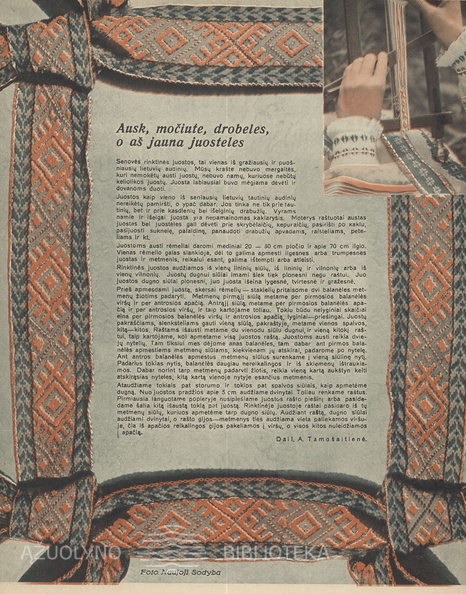 Ausk, močiute, drobeles,
o aš jauna juosteles
Senovės rinktinės juostos, tai vienas iš gražiausių ir puoš-
niausių lietuvių audinių. Mūsų krašte nebuvo mergaitės,
kuri nemokėtų austi juostų, nebuvo namų, kuriuose nebūtų
keliolikos juostų. Juosta labiausiai buvo mėgiama dėvėti ir
dovanoms duoti.
Juostos kaip vieno iš seniausių lietuvių tautinių audinių
nereikėtų pamiršti, o ypač dabar. Jos tinka ne tik prie tau-
tinių, bet ir prie kasdienių bei išeiginių drabužių. Vyrams
name ir išeigai juosta yra nepamainomas kaklaryšis. Moterys raštuotai austas
juostas bei juosteles gali dėvėti prie skrybėlaičių, kepuraičių, pasirišti po kaklu,
pasijuosti suknelę, palaidinę, panaudoti drabužių apvadams, rakteliams, pete-
liams ir kt.
Juostoms austi rėmeliai daromi mediniai 20 — 30 cm pločio ir apie 70 cm ilgio.
Vienas rėmelio galas slankioja, dėl to galima apmesti ilgesnes arba trumpesnes
juostas ir metmenis, reikalui esant, galima ištempti arba atleisti.
Rinktinės juostos audžiamos iš vienų lininių siūlų, iš lininių ir vilnonių arba iš
vienų vilnonių. Juostų dugnui siūlai imami šiek tiek plonesni negu raštui. Juo
juostos dugno siūlai plonesni, juo juosta išeina lygesnė, tvirtesnė ir gražesnė.
Prieš apmesdami juostą, skersai rėmelių — staklelių pritaisome dvi balanėles met-
menų žiotims padaryti. Metmenų pirmąjį siūlą metame per pirmosios balanėlės
viršų ir per antrosios apačią. Antrąjį siūlą metame per pirmosios balanėlės apa-
čią ir per antrosios viršų, ir taip kartojame toliau. Tokiu būdu nelyginiai skaičiai
eina per pirmosios balanėlės viršų ir antrosios apačią, lyginiai—priešingai. Juostų
pakraščiams, sienkštėliams gauti vieną siūlą, pakraštyje, metame vienos spalvos,
kitą—kitos; Raštams išausti metame du vienodu siūlu dugnui ir vieną kitokį raš-
tui, taip kartojame, kol apmetame visą juostos raštą. Juostoms austi reikia dvie-
jų nytelių. Tam tikslui mes dėjome anas balanėles, tam dabar ant pirmos bala-
nėlės apmestiems metmenų siūlams, kiekvienam jų atskirai, padarome po nytelę.
Ant antros balanėlės apmestus metmenų siūlus surenkame į vieną siūlinę nytį.
Padarius tokias nytis, balanėlės daugiau nereikalingos ir iš skiemenų ištraukia-
mos. Dabar norint tarp metmenų padaryti žiotis, reikia vieną kartą aukštyn kelti
atskirąsias nyteles, kitą kartą vienoje nytyje esančius metmenis.
Ataudžiame tokiais pat storumo ir tokios pat spalvos siūlais, kaip apmetėme
dugną. Nuo juostos pradžios apie 5 cm audžiame dvinytai. Toliau renkame raštus.
Pirmiausia languotame popieryje nusipiešiame juostos rašto piešinį arba paside-
dame šalia kitą išaustą tokią pat juostą. Rinktinėje juostoje raštai pasidaro iš tų
metmenų siūlų, kuriuos apmetėme tarp dugno siūlų. Audžiant raštą, dugno siūlai
audžiami dvinytai, o rašto gijos—metmenys ties audžiama vieta paliekamos viršu-
je, čia iš apačios reikalingos gijos pakeliamos į viršų, o visos kitos nuleidžiamos
į apačią.
Dail. A. Tamošaitienė.
AZUOLYNO BIBLIOTEKA
Foto Naujoji Sodyba